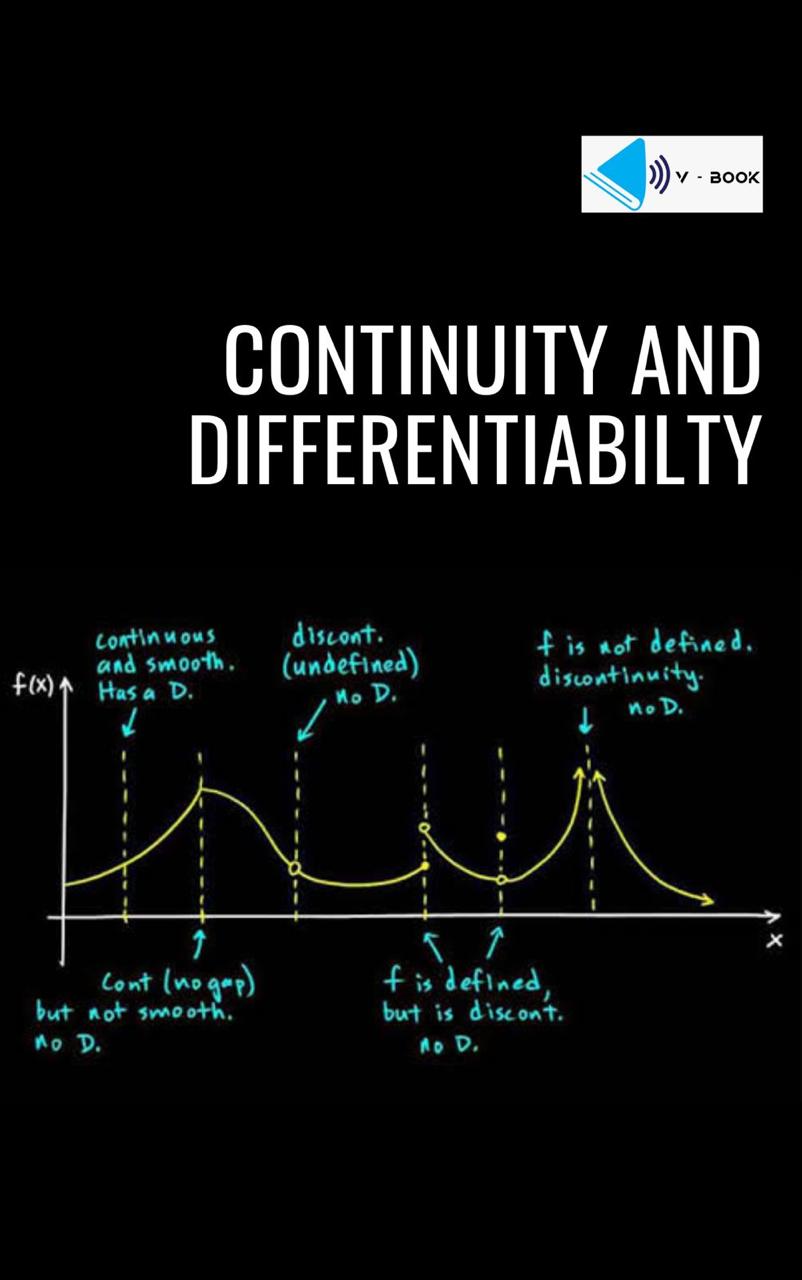 V - BOOK
CONTINUITY AND
DIFFERENTIABILTY
continuous
and smooth.
Has a D.
discont.
(undefined)
no D.
f is not defined.
discontinuity.
no D.
f(x)
x
Cont (no gap)
but not smooth.
no D.
f is defined,
but is discont.
no D.